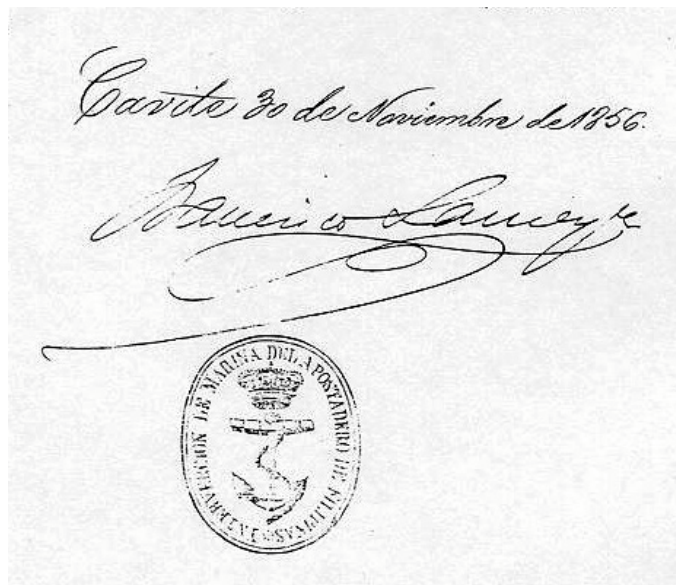 Cavite 30 de Noviembre de 1856.
Francisco Lameyre
INTERVENCION DE MARINA DEL APOSTADERO DE FILIPINAS